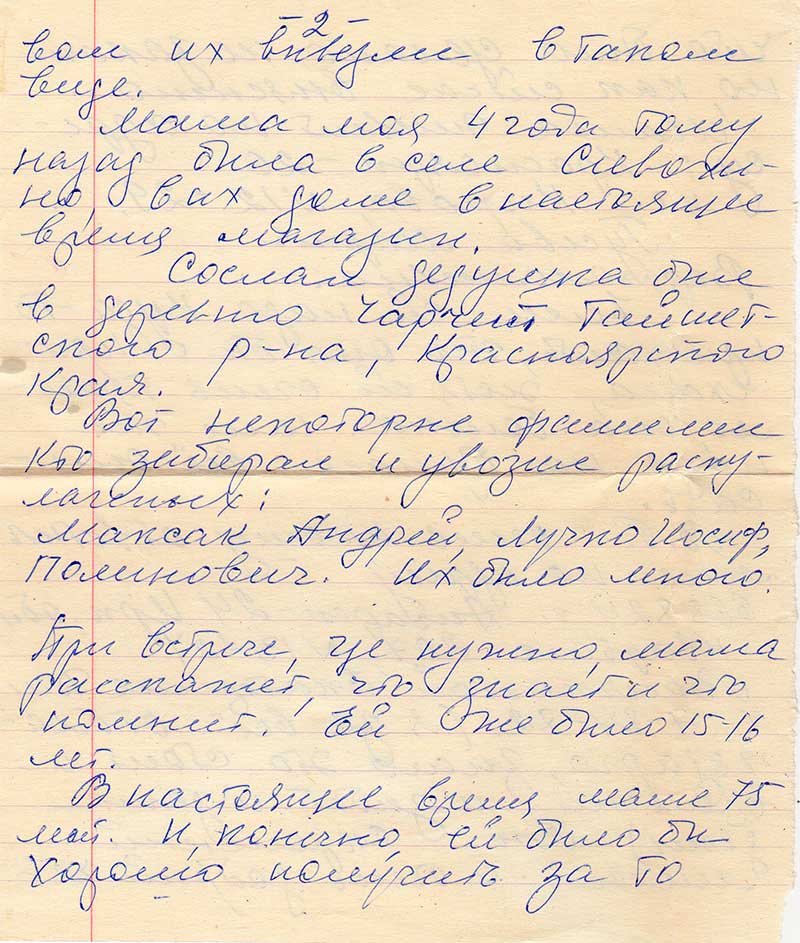 -2-
вом их вывезли в таком
виде.
Мама моя 4 года тому
назад была в селе Сивохи-
но, в их доме в настоящее
время магазин.
Сослан дедушка был
в деревню Чарчет Тайшет-
ского р-на, Красноярского
края.
Вот некоторые фамилии
кто забирал и увозил раску-
лаченых:
Максак Андрей, Лучко Иосиф,
Полинович. Их было много.
При встрече, где нужно, мама
расскажет, что знает и что
помнит. Ей же было 15-16
лет.
В настоящее время маме 75
лет. И, конечно, ей было бы
хорошо получить за то